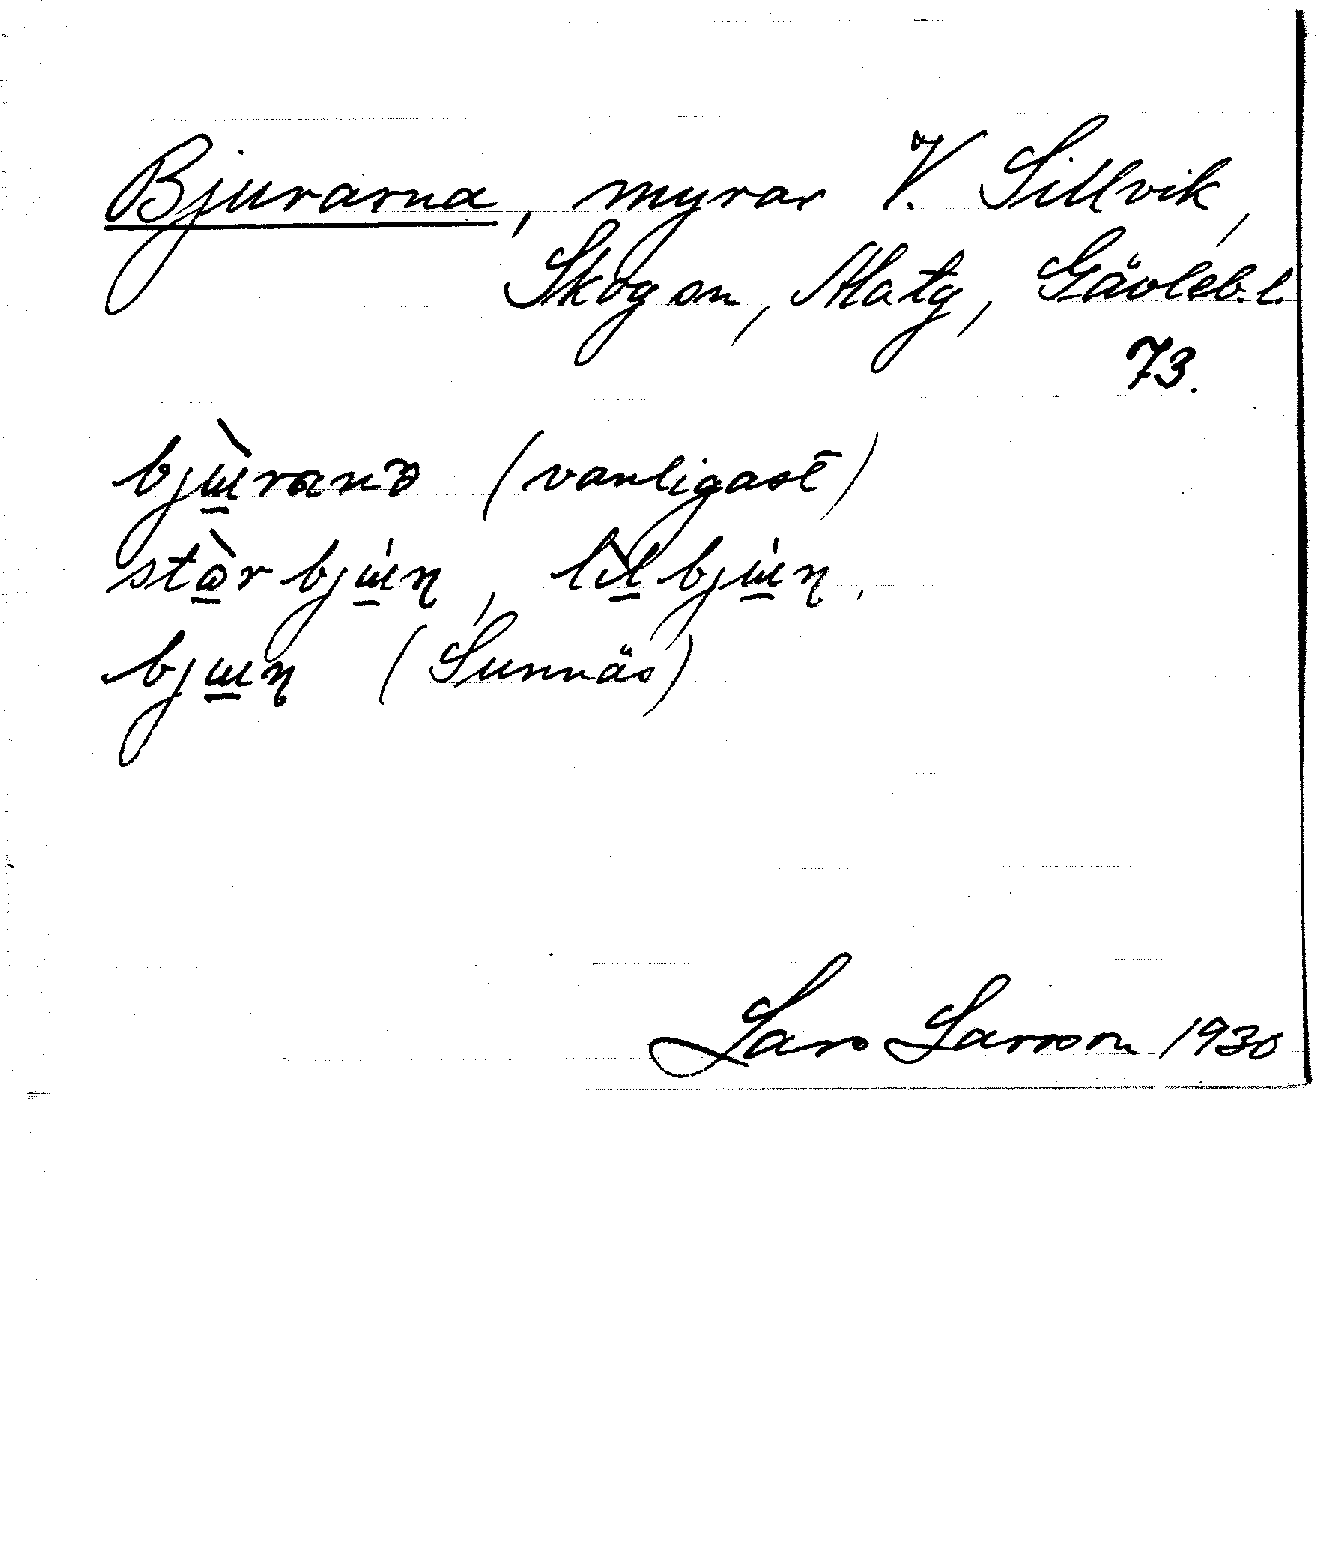 Bjurarna, myrar V. Sillvik,
Skog sn, Matg, Gävleb. l.
73.
bjɯ̠̀ranə (vanligast)
stɷ̠̀r bjɯ̠́ɳ, lìl̠ bjɯ̠́ɳ,
bjɯ̠ɳ (Sunnäs)
Lars Larsson 1930